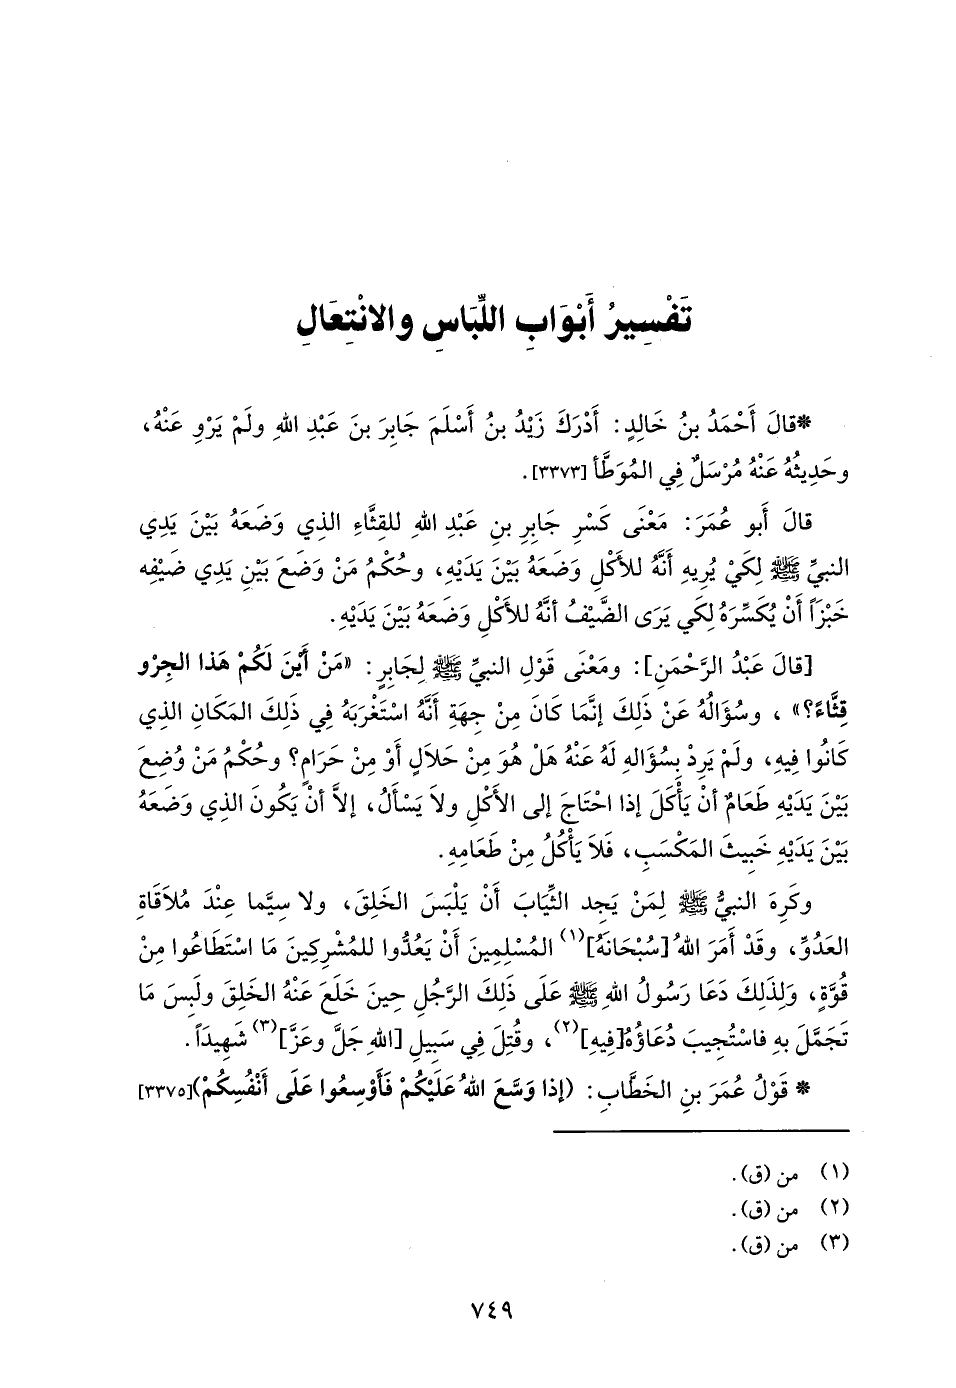 تَفْسِيرُ أَبْوَابِ اللِّبَاسِ والانْتِعَالِ
*قالَ أَحْمَدُ بنُ خَالِدٍ: أَدْرَكَ زَيْدُ بنُ أَسْلَمَ جَابِرَ بنَ عَبْدِ اللهِ ولَمْ يَرْوِ عَنْهُ،
وحَدِيثُهُ عَنْهُ مُرْسَلٌ فِي المُوَطَّأ [٣٣٧٣].
قالَ أَبو عُمَرَ: مَعْنَى كَسْرِ جَابِرِ بنِ عَبْدِ اللهِ للقِثَّاءِ الذِي وَضَعَهُ بَيْنَ يَدِي
النبيِّ ﷺ لِكَيْ يُرِيهِ أَنَّهُ للأَكْلِ وَضَعَهُ بَيْنَ يَدَيْهِ، وحُكْمُ مَنْ وَضَعَ بَيْنِ يَدِي ضَيْفِه
خَبْزَاً أَنْ يُكَسِّرَهُ لِكَي يَرَى الضَّيْفُ أنَّهُ للأَكْلِ وَضَعَهُ بَيْنَ يَدَيْهِ.
[قالَ عَبْدُ الرَّحْمَنِ]: ومَعْنَى قَوْلِ النبيِّ ﷺ لِجَابِرٍ: «مَنْ أَيْنَ لَكُمْ هَذا الجِرْو
قِثَّاءً؟» ، وسُؤَالُهُ عَنْ ذَلِكَ إنَّمَا كَانَ مِنْ جِهَةِ أَنَّهُ اسْتَغْرَبَهُ فِي ذَلِكَ المَكَانِ الذِي
كَانُوا فِيهِ، ولَمْ يَرِدْ بِسُؤَالهِ لَهُ عَنْهُ هَلْ هُوَ مِنْ حَلاَلٍ أَوْ مِنْ حَرَامٍ؟ وحُكْمُ مَنْ وُضِعَ
بَيْنَ يَدَيْهِ طَعَامٌ أنْ يَأْكَلَ إذا احْتَاجَ إلى الأَكْلِ ولاَ يَسْأَلُ، إلاَّ أنْ يَكُونَ الذِي وَضَعَهُ
بَيْنَ يَدَيْهِ خَبِيثَ المَكْسَبِ، فَلاَ يَأْكُلُ مِنْ طَعَامِهِ.
وكَرِهَ النبيُّ ﷺ لِمَنْ يَجِد الثِّيَابَ أَنْ يَلْبَسَ الخَلِقَ، ولا سِيَّما عِنْدَ مُلاَقَاةِ
العَدُوِّ، وقَدْ أَمَرَ اللهُ [سُبْحَانَهُ](١) المُسْلِمِينَ أَنْ يَعُدُّوا للمُشْرِكِينَ مَا اسْتَطَاعُوا مِنْ
قُوَّةٍ، وَلِذَلِكَ دَعَا رَسُولُ اللهِ ﷺ عَلَى ذَلِكَ الرَّجُلِ حِينَ خَلَعَ عَنْهُ الخَلِقَ ولَبِسَ مَا
تَجَمَّلَ بهِ فاسْتُجِيبَ دُعَاؤُهُ[فِيهِ](٢)، وقُتِلَ فِي سَبِيلِ [اللهِ جَلَّ وعَزَّ](٣) شَهِيدَاً.
* قَوْلُ عُمَرَ بنِ الخَطَّابِ: (إذا وَسَّعَ اللهُ عَلَيْكُمْ فَأَوْسِعُوا عَلَى أَنْفُسِكُمْ)[٣٣٧٥]
(١) من (ق).
(٢) من (ق).
(٣) من (ق).
٧٤٩